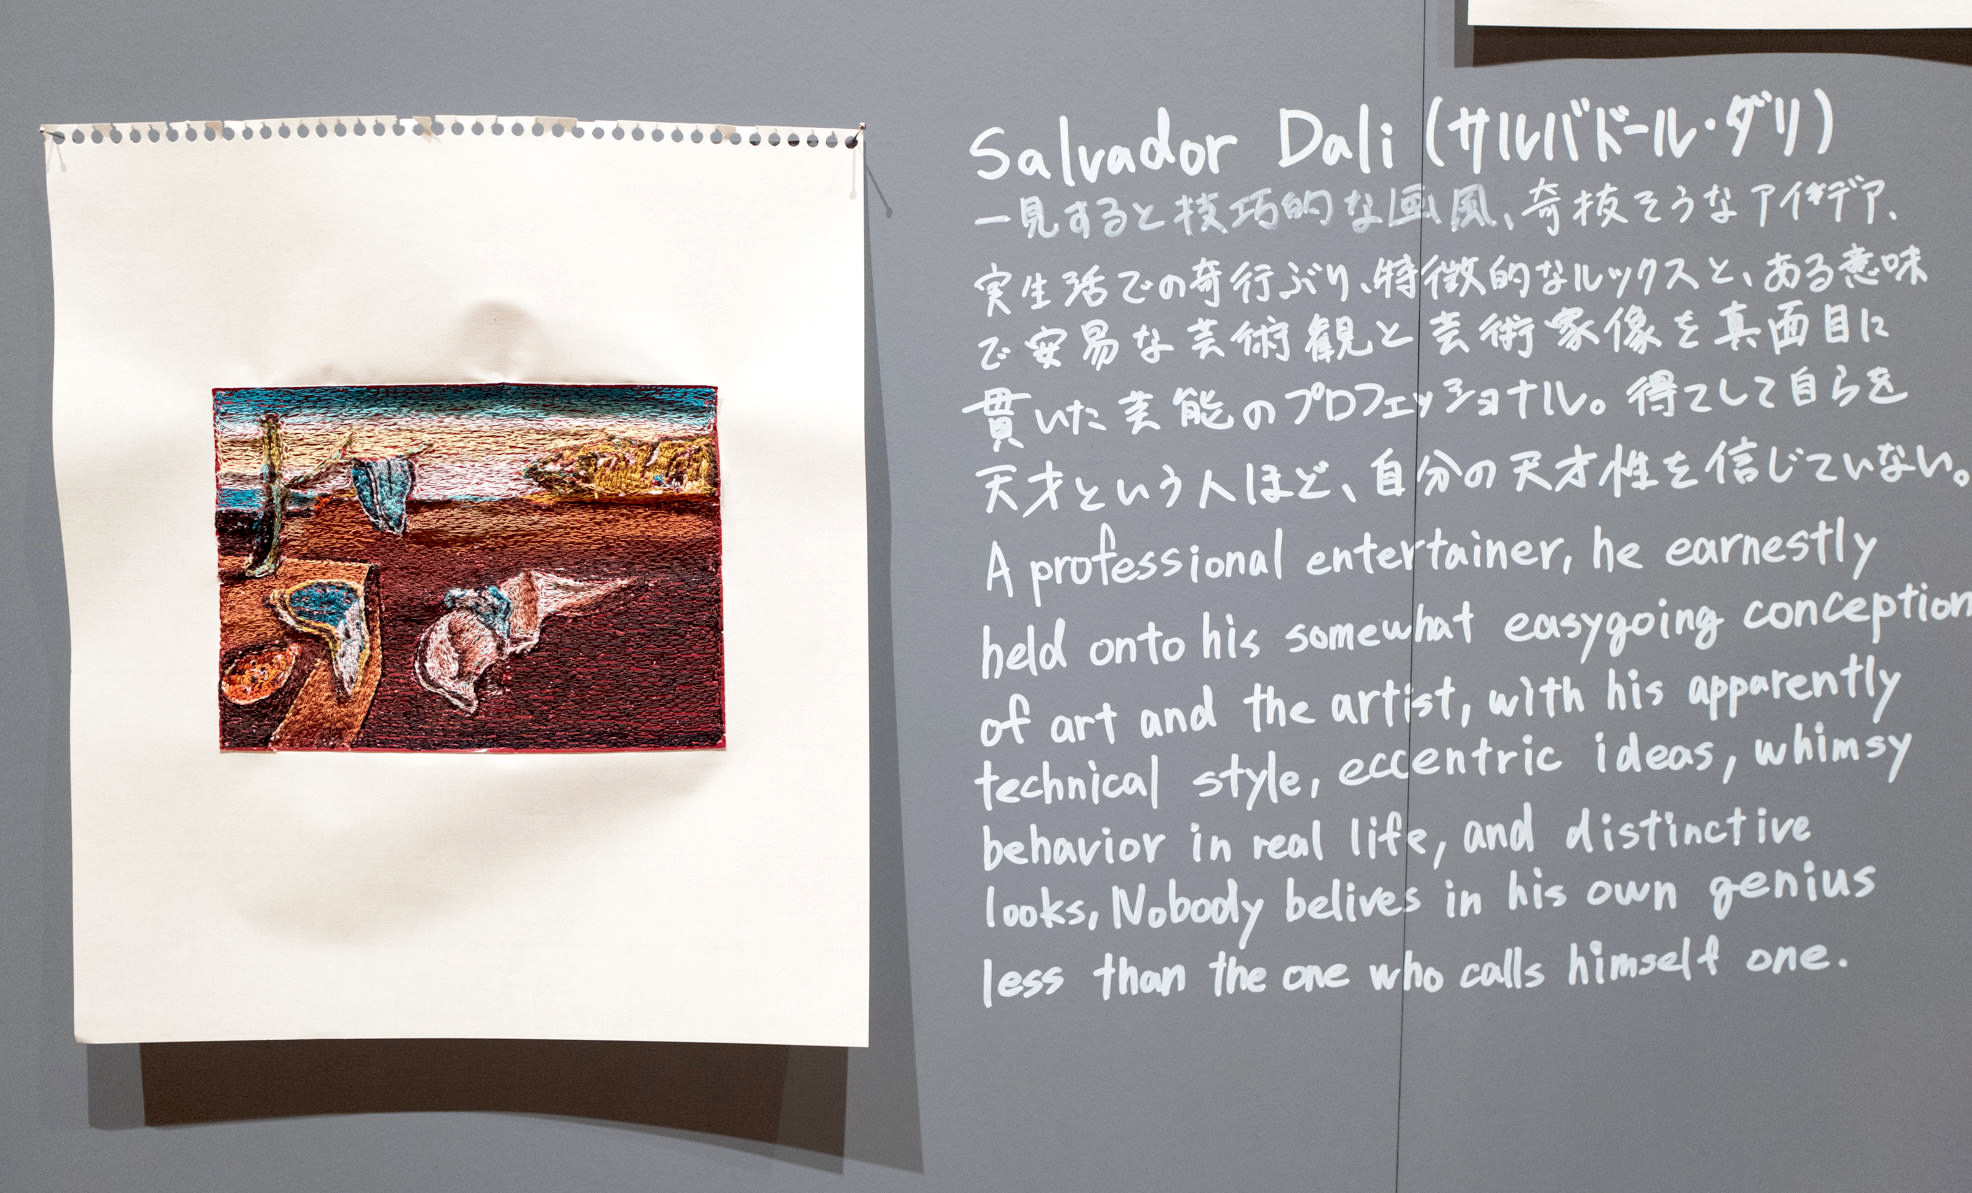 Salvador Dali (サルバドール・ダリ)
一見すると技巧的な画風、奇抜そうなアイデア、
実生活での奇行ぶり、特徴的なルックスと、ある意味
で安易な芸術観と芸術家像を真面目に
貫いた芸能のプロフェッショナル。得てして自らを
天才という人ほど、自分の天才性を信じていない。
A professional entertainer, he earnestly
held onto his somewhat easygoing conception
of art and the artist, with his apparently
technical style, eccentric ideas, whimsy
behavior in real life, and distinctive
looks, Nobody belives in his own genius
less than the one who calls himself one.